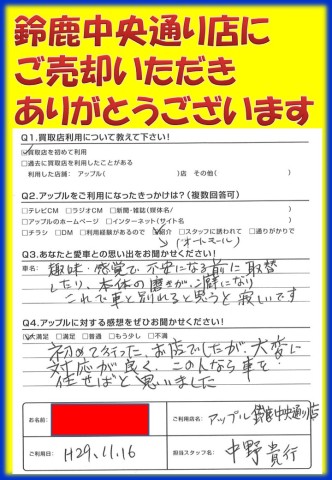 鈴鹿中央通り店に
ご売却いただき
ありがとうございます
Q1.買取店利用について教えて下さい!
☑買取店を初めて利用
□過去に買取店を利用したことがある
利用した店舗: アップル( )店 その他( )
Q2.アップルをご利用になったきっかけは?(複数回答可)
□テレビCM □ラジオCM □新聞・雑誌(媒体名/ )
□アップルのホームページ □インターネット(サイト名 )
□チラシ □DM □利用経験があるので ☑紹介 □スタッフに誘われて □通りがかりで
(オートモール)
Q3.あなたと愛車との思い出をお聞かせください!
車名:
趣味・感覚で不安になる前に取替
したり、本体の磨きが、に癖になり
これで車と別れると思うと寂しいです
Q4.アップルに対する感想をぜひお聞かせください!
☑大満足 □満足 □普通 □もう少し □不満
初めて行った、お店でしたが、大変に
対応が良く、このんなら車を
任せればと思いました
お名前:
ご利用店名: アップル鈴鹿中央通り店
ご利用日: H29.11.16
担当スタッフ名: 中野貴行